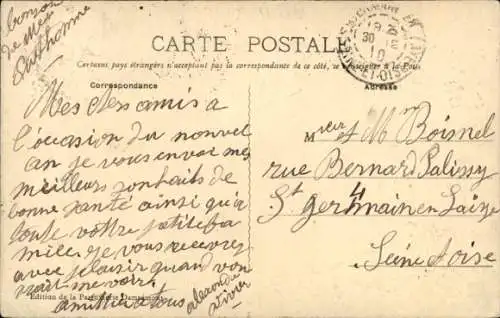 bonjour
de
CARTE POSTALE
Certains pays étrangers n'acceptent pas la correspondance de ce côté, se renseigner à la Poste
Correspondance
Adresse
Mes chers amis a
l'occasion du nouvel
an je vous envoi mes
meilleurs souhaits de
bonne santé ainsi qu'a
toute vottre petite fa
mille. je vous recevrez
avec plaisir quand vou
me voir.
amitiée a tous
alexandre
Mr et Mm Boisnel
rue Bernard Palissy
4
St Germain en Laize
Seine Oise
Edition de la
30
ET-OISE